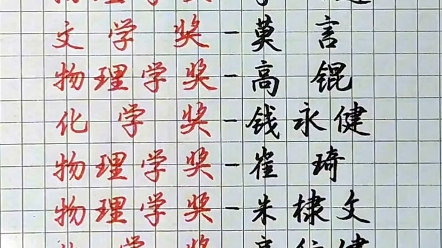 文学奖-莫言
物理学奖-高锟
化学奖-钱永健
物理学奖-崔琦
物理学奖-朱棣文